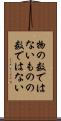 物の数では
ないものの
数ではない